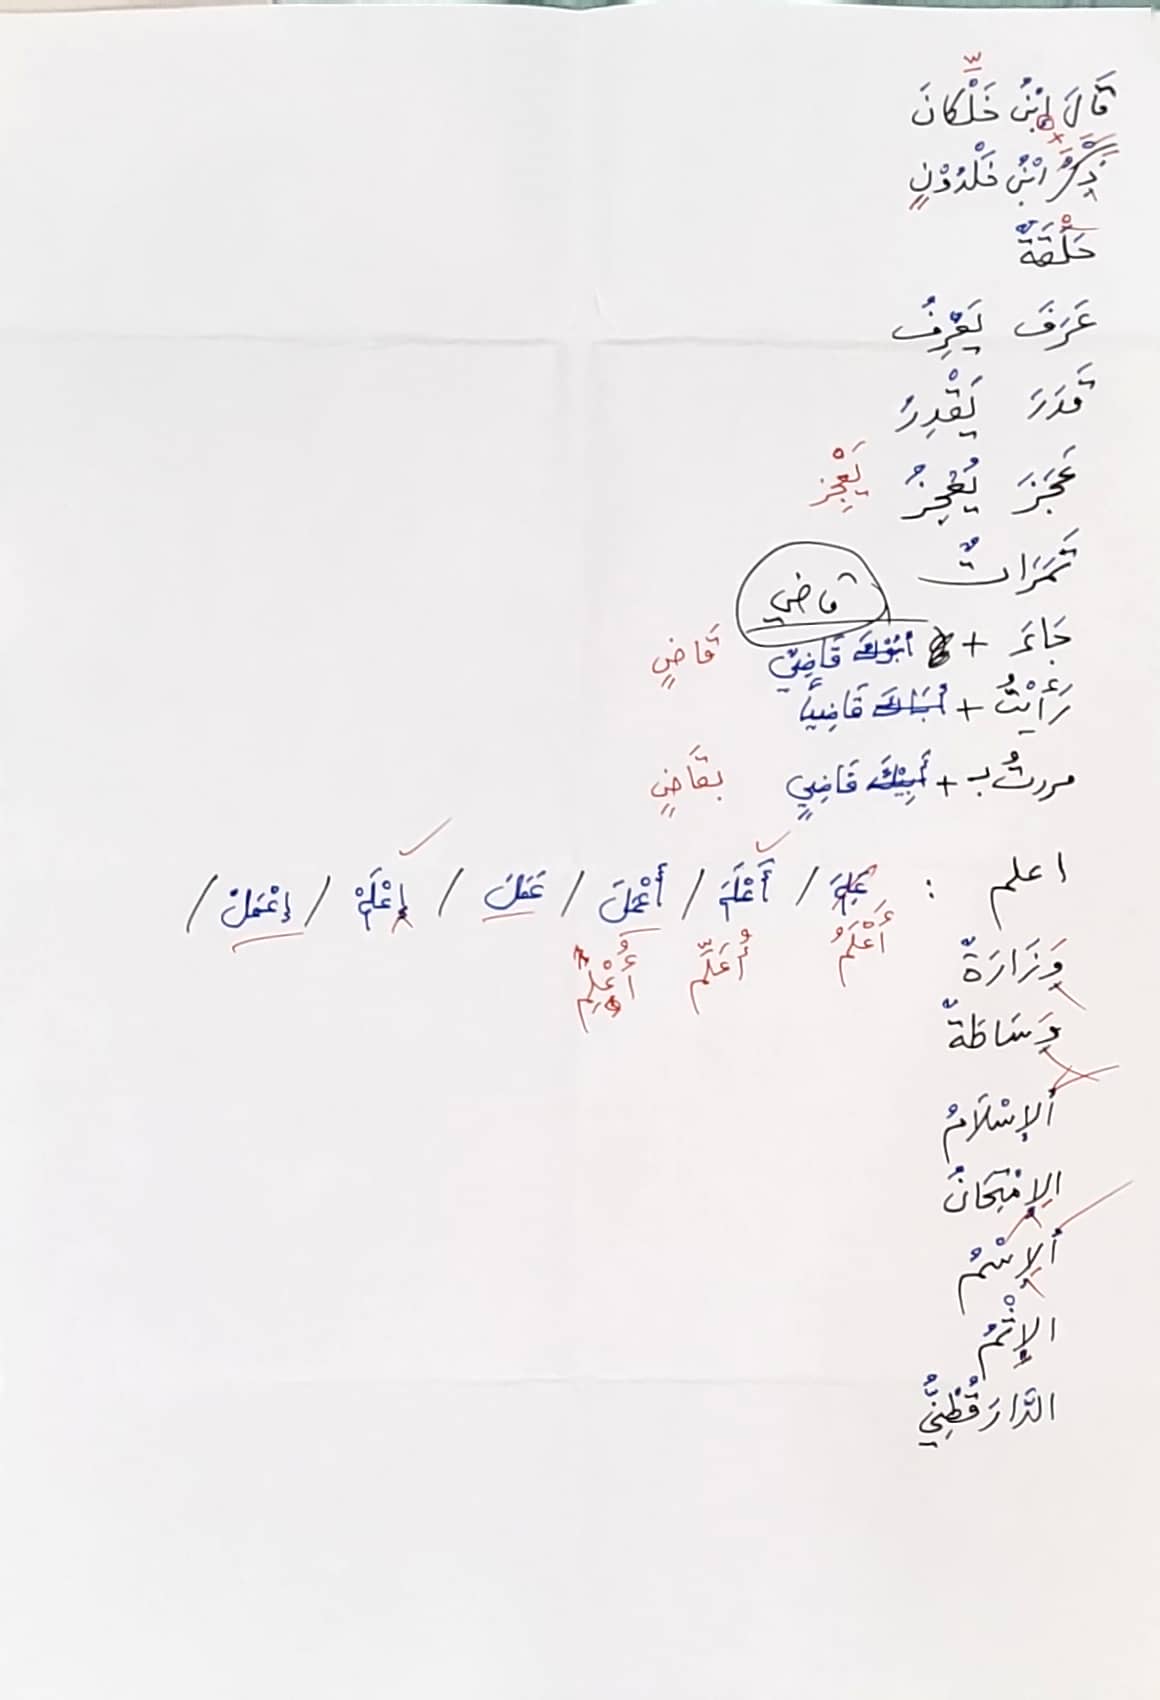 قَالَ ابْنُ خَلْكَانَ
ذَكَرَ ابْنُ خَلْدُوْنٍ
حَلْقَةٌ
عَرَفَ يَعْرِفُ
قَدَرَ يَقْدِرُ
عَجَزَ يُعْجِزُ يَعْجِز
تَمَرَاتٌ
قاضي
جَاءَ + أَبُوْكَ قَاضِيٌ قَاضٍ
رَأَيْتُ + أَبَاكَ قَاضِياً
مررتُ بـ + أَبِيْكَ قَاضِيٍ بقَاضٍ
اعلم : عَلِمَ / أَعْلَمَ / أَعْمَلَ / عَمَلَ / إعْلَمْ / إعْمَلْ /
أَعْلَمُ أُعَلِّم أُعْلِمُ
وَزَارَةٌ
وَسَاطَةٌ
ألإسْلَامُ
الإمْتِحَانُ
ألإسْمُ
الإثْمُ
الدَّارَقُطْنِيُّ